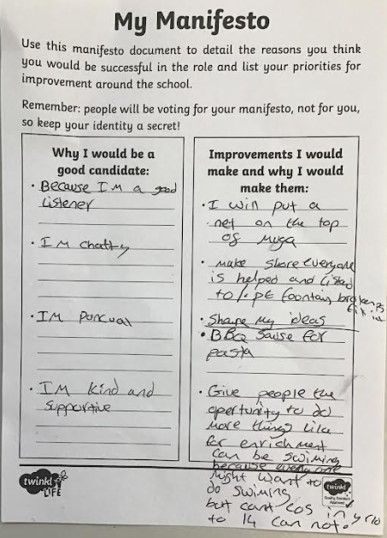 My Manifesto
Use this manifesto document to detail the reasons you think
you would be successful in the role and list your priorities for
improvement around the school.
Remember: people will be voting for your manifesto, not for you,
so keep your identity a secret!
Why I would be a
good candidate:
• Because I'M a good
Listener
• I M chatty
• IM Puncual
• IM Kind and
supportive
Improvements I would
make and why I would
make them:
• I win put a
net on the top
of muga
• make shore everyone
is helped and
to. PE fountain
fix it
• Share my ideas
• BBQ Sause for
pasta
• Give people the
opertunity to do
more things like
for enrichment
can be swiming
because
might want to
do swiming
but cant cos in yr10
to 14 can not.
twinkl
LIFE
twinkl